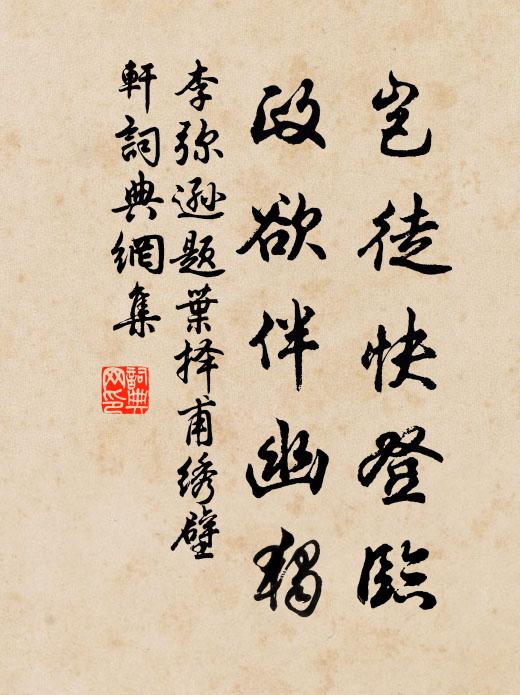 岂徒快登臨
政欲伴幽獨
李弥遜题葉择甫绣壁
軒詞典網集
詞典
网印